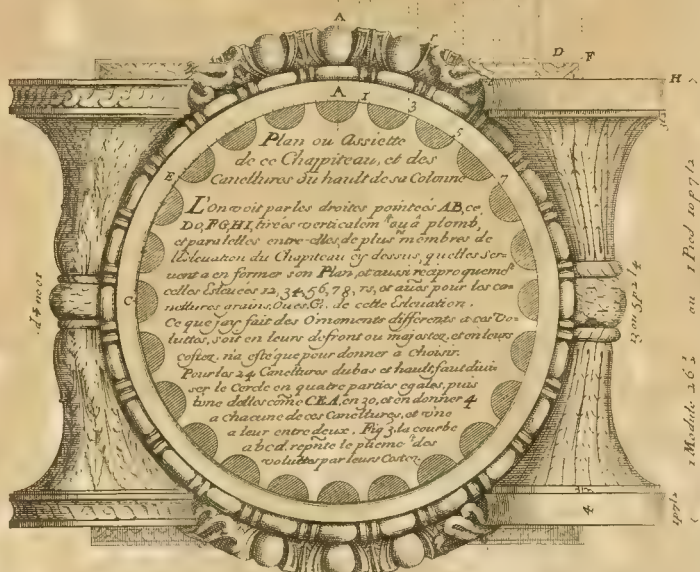 A
r
D F
H
A 1
3
5
7
E
C
Plan ou Assiette
de ce Chappiteau, et des
Canellures du hault de sa Colonne
L'on voit par les droites pointées AB, ce,
DO, FG, HI, tirées verticalem.t ou à plomb
et paralelles entre-elles de plus.rs membres de
l'Esleuation du Chapiteau cy dessus, quelles ser-
uent a en former son Plan, et aussi reciproquem.t
celles Esleuées 12, 34, 56, 78, rs, et au.es pour les ca-
nellures, grains, Oues, &c. de cette Esleuation.
Ce que j'ay fait des Ornoments differents a ces Vo-
luttes, soit en leurs defront ou majestez, et en leurs
costez, n'a esté que pour donner a choisir.
Pour les 24 Canellures du bas et hault, faut diui-
ser le Cercle en quatre parties egales, puis
l'une d'elles comé CEA, en 30, et en donner 4
a chacune de ces Canellures, et vne
a leur entre deux. Fig 3. la courbe
abcd, repñte le pliem.t des
voluttes par leurs Costez.
4